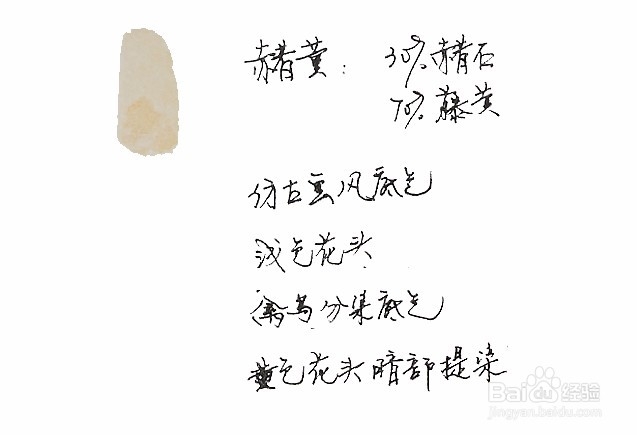 赭黄：30%赭石
70%藤黄
仿古画风底色
浅色花头
禽鸟分染底色
黄色花头暗部提染
Baidu经验
jingyan.baidu.com